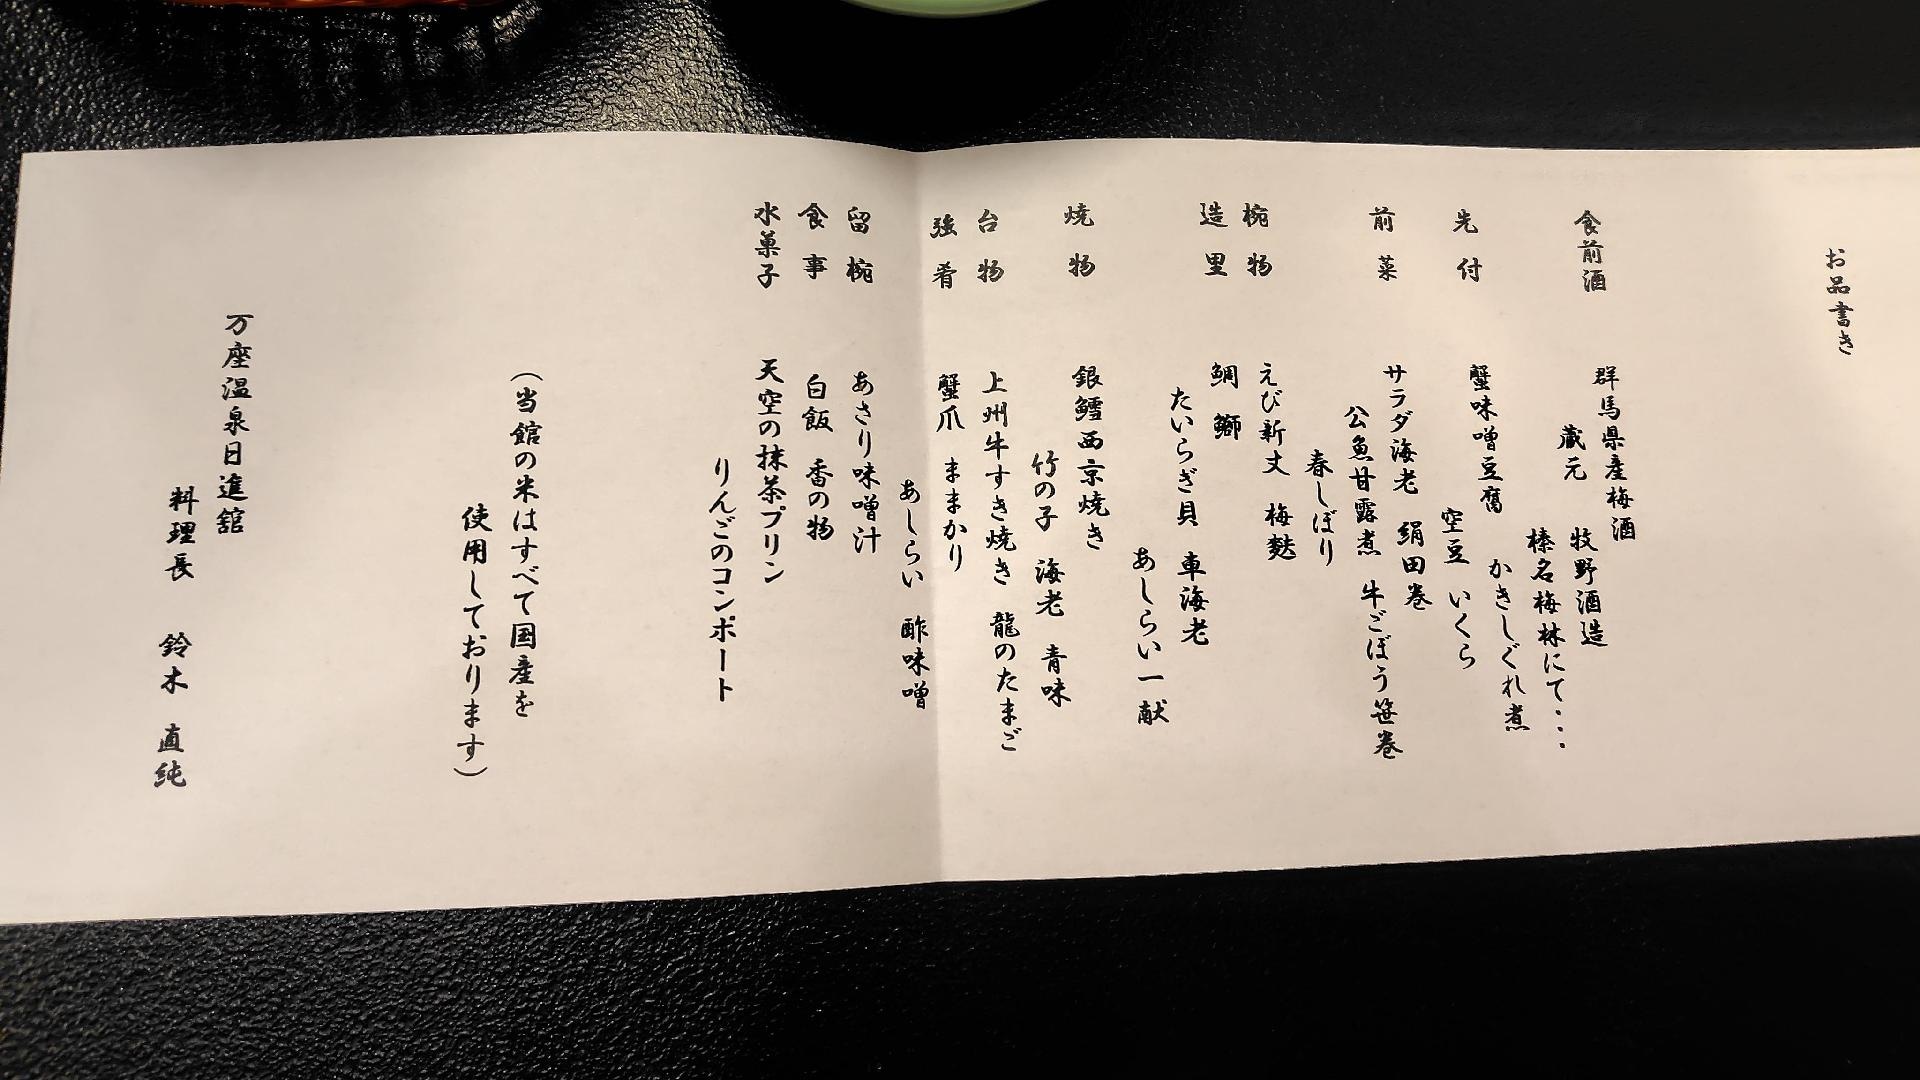 お品書き
食前酒 群馬県産梅酒
蔵元 牧野酒造
榛名梅林にて・・・
先付 蟹味噌豆腐 かきしぐれ煮
空豆 いくら
前菜 サラダ海老 絹田巻
公魚甘露煮 牛ごぼう笹巻
春しぼり
椀物 えび新丈 梅麩
造里 鯛 鰤
たいらぎ貝 車海老
あしらい一献
焼物 銀鱈西京焼き
竹の子 海老 青味
台物 上州牛すき焼き 龍のたまご
強肴 蟹爪 ままかり
あしらい 酢味噌
留椀 あさり味噌汁
食事 白飯 香の物
水菓子 天空の抹茶プリン
りんごのコンポート
(当館の米はすべて国産を
使用しております)
万座温泉日進舘
料理長 鈴木 直純